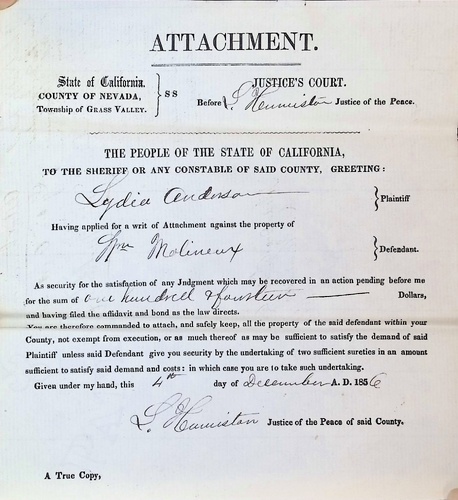 ATTACHMENT.
State of California.
COUNTY OF NEVADA,
Township of GRASS VALLEY.
} SS
JUSTICE'S COURT.
Before S. Humiston Justice of the Peace.
THE PEOPLE OF THE STATE OF CALIFORNIA,
TO THE SHERIFF OR ANY CONSTABLE OF SAID COUNTY, GREETING:
Lydia Anderson } Plaintiff
Having applied for a writ of Attachment against the property of
Wm Molineux } Defendant.
As security for the satisfaction of any Jndgment which may be recovered in an action pending before me
for the sum of one hundred & fourteen Dollars,
and having filed the affidavit and bond as the law directs.
You are therefore commanded to attach, and safely keep, all the property of the said defendant within your
County, not exempt from execution, or as much thereof as may be sufficient to satisfy the demand of said
Plaintiff unless said Defendant give you security by the undertaking of two sufficient sureties in an amount
sufficient to satisfy said demand and costs: in which case you are to take such undertaking.
Given under my hand, this 4th day of December A. D. 1856
S. Humiston Justice of the Peace of said County.
A True Copy,